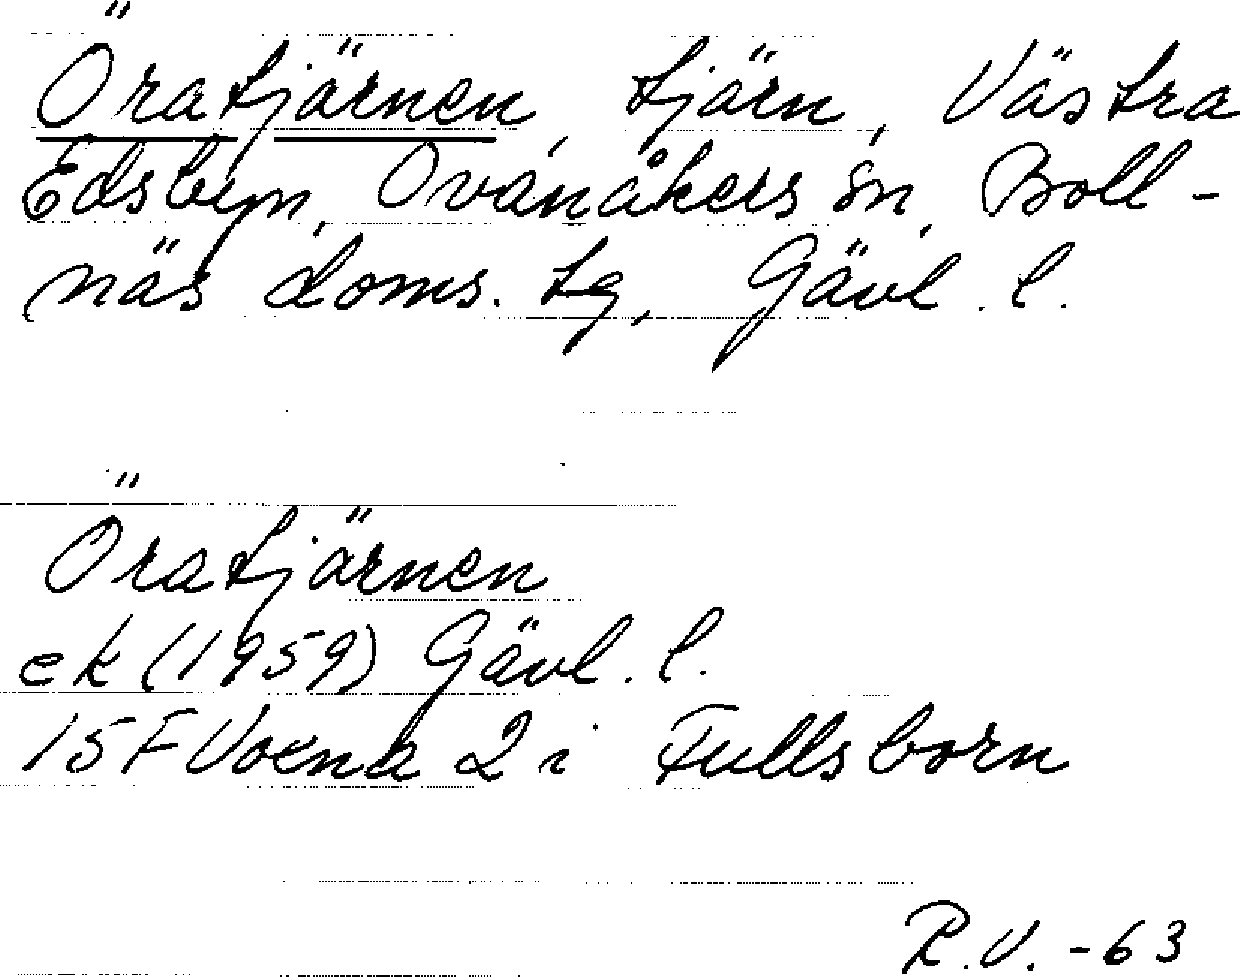 Öratjärnen, tjärn, Västra
Edsbyn, Ovanåkers sn, Boll-
näs doms. tg, Gävl. l.
Öratjärnen
ek (1959) Gävl. l.
15F Voxna 2 i Fullsborn
R.V. -63